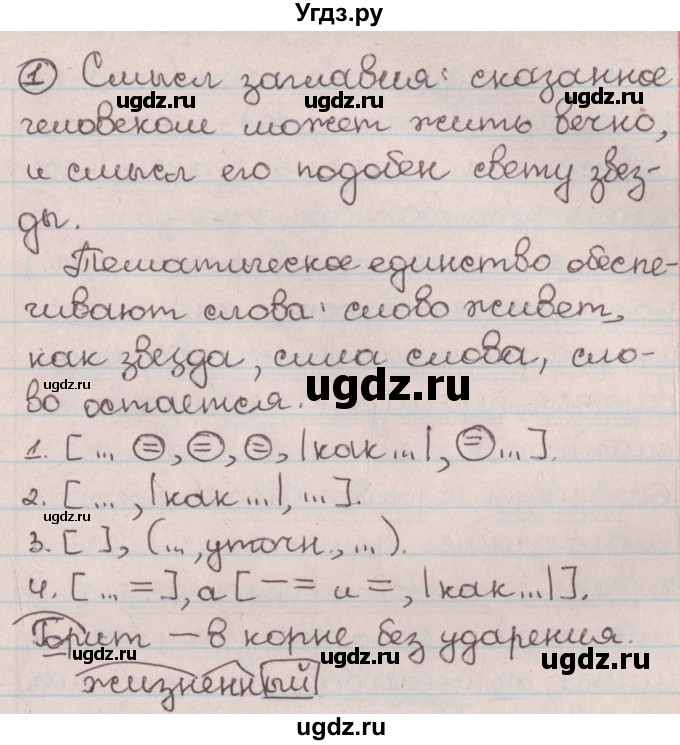 Угдз.ру
① Смысл заглавия: сказанное
ugdz.ru ugdz.ru ugdz.ru
человеком может жить вечно,
и смысл его подобен свету звез-
ugdz.ru ugdz.ru
ды.
Тематическое единство обеспе-
чивают слова: слово живет,
как звезда, сила слова, сло-
ugdz.ru ugdz.ru
во остается.
1. [... ⊜, ⊜, ⊜, |как...|, ⊜...].
2. [..., |как...|, ...].
ugdz.ru
3. [ ], (..., уточн., ...).
4. [... =], а [— = и =, |как...|].
Горит — в корне без ударения.
ugdz.ru ugdz.ru ugdz.ru
жизненный
ugdz.ru